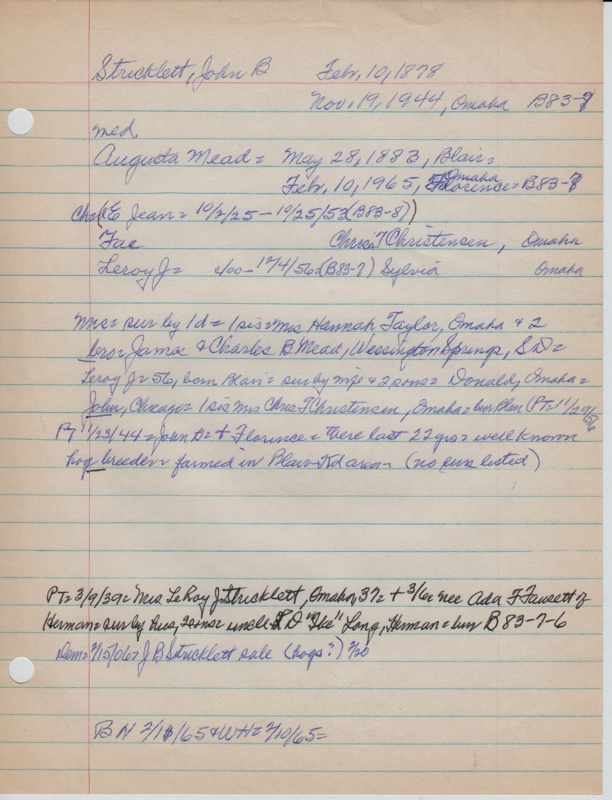 Stricklett, John B Feb. 10, 1878
Nov. 19, 1944, Omaha B83-8
med
Augusta Mead = May 28, 1883, Blair =
Omaha
Febr. 10, 1965, Florence = B83-8
Chr (E Jean = 10/2/25 - 10/25/53 (B83-8))
Fae Chris T Christensen, Omaha
Leroy J = c/00 - 1/24/56 (B83-7) Sylvia Omaha
Mrs = sur by 1d = 1 sis = Mrs Hannah Taylor, Omaha & 2
bro = James & Charles B Mead, Wessington Springs, SD =
Leroy J = 56, born Blair = sur by wife & 2 sons = Donald, Omaha =
John, Chicago = 1 sis Mrs Chris T Christensen, Omaha = bur Blair (PT = 1/29/56
PT 11/23/44 = John B = + Florence = there last 22 yrs = well known
hog breeder = farmed in Blair - Kd area - (no surs listed)
PT = 3/9/39 = Mrs LeRoy J Stricklett, Omaha, 37 = + 3/6 = nee Ada F Fawcett of
Herman = sur by hus, 2 sons = uncle L D "Ike" Long, Herman = bur B 83-7-6
Dem = 2/15/06 = J B Stricklett sale (hogs?) 2/20
BN 2/18/65 & WH = 2/10/65 =